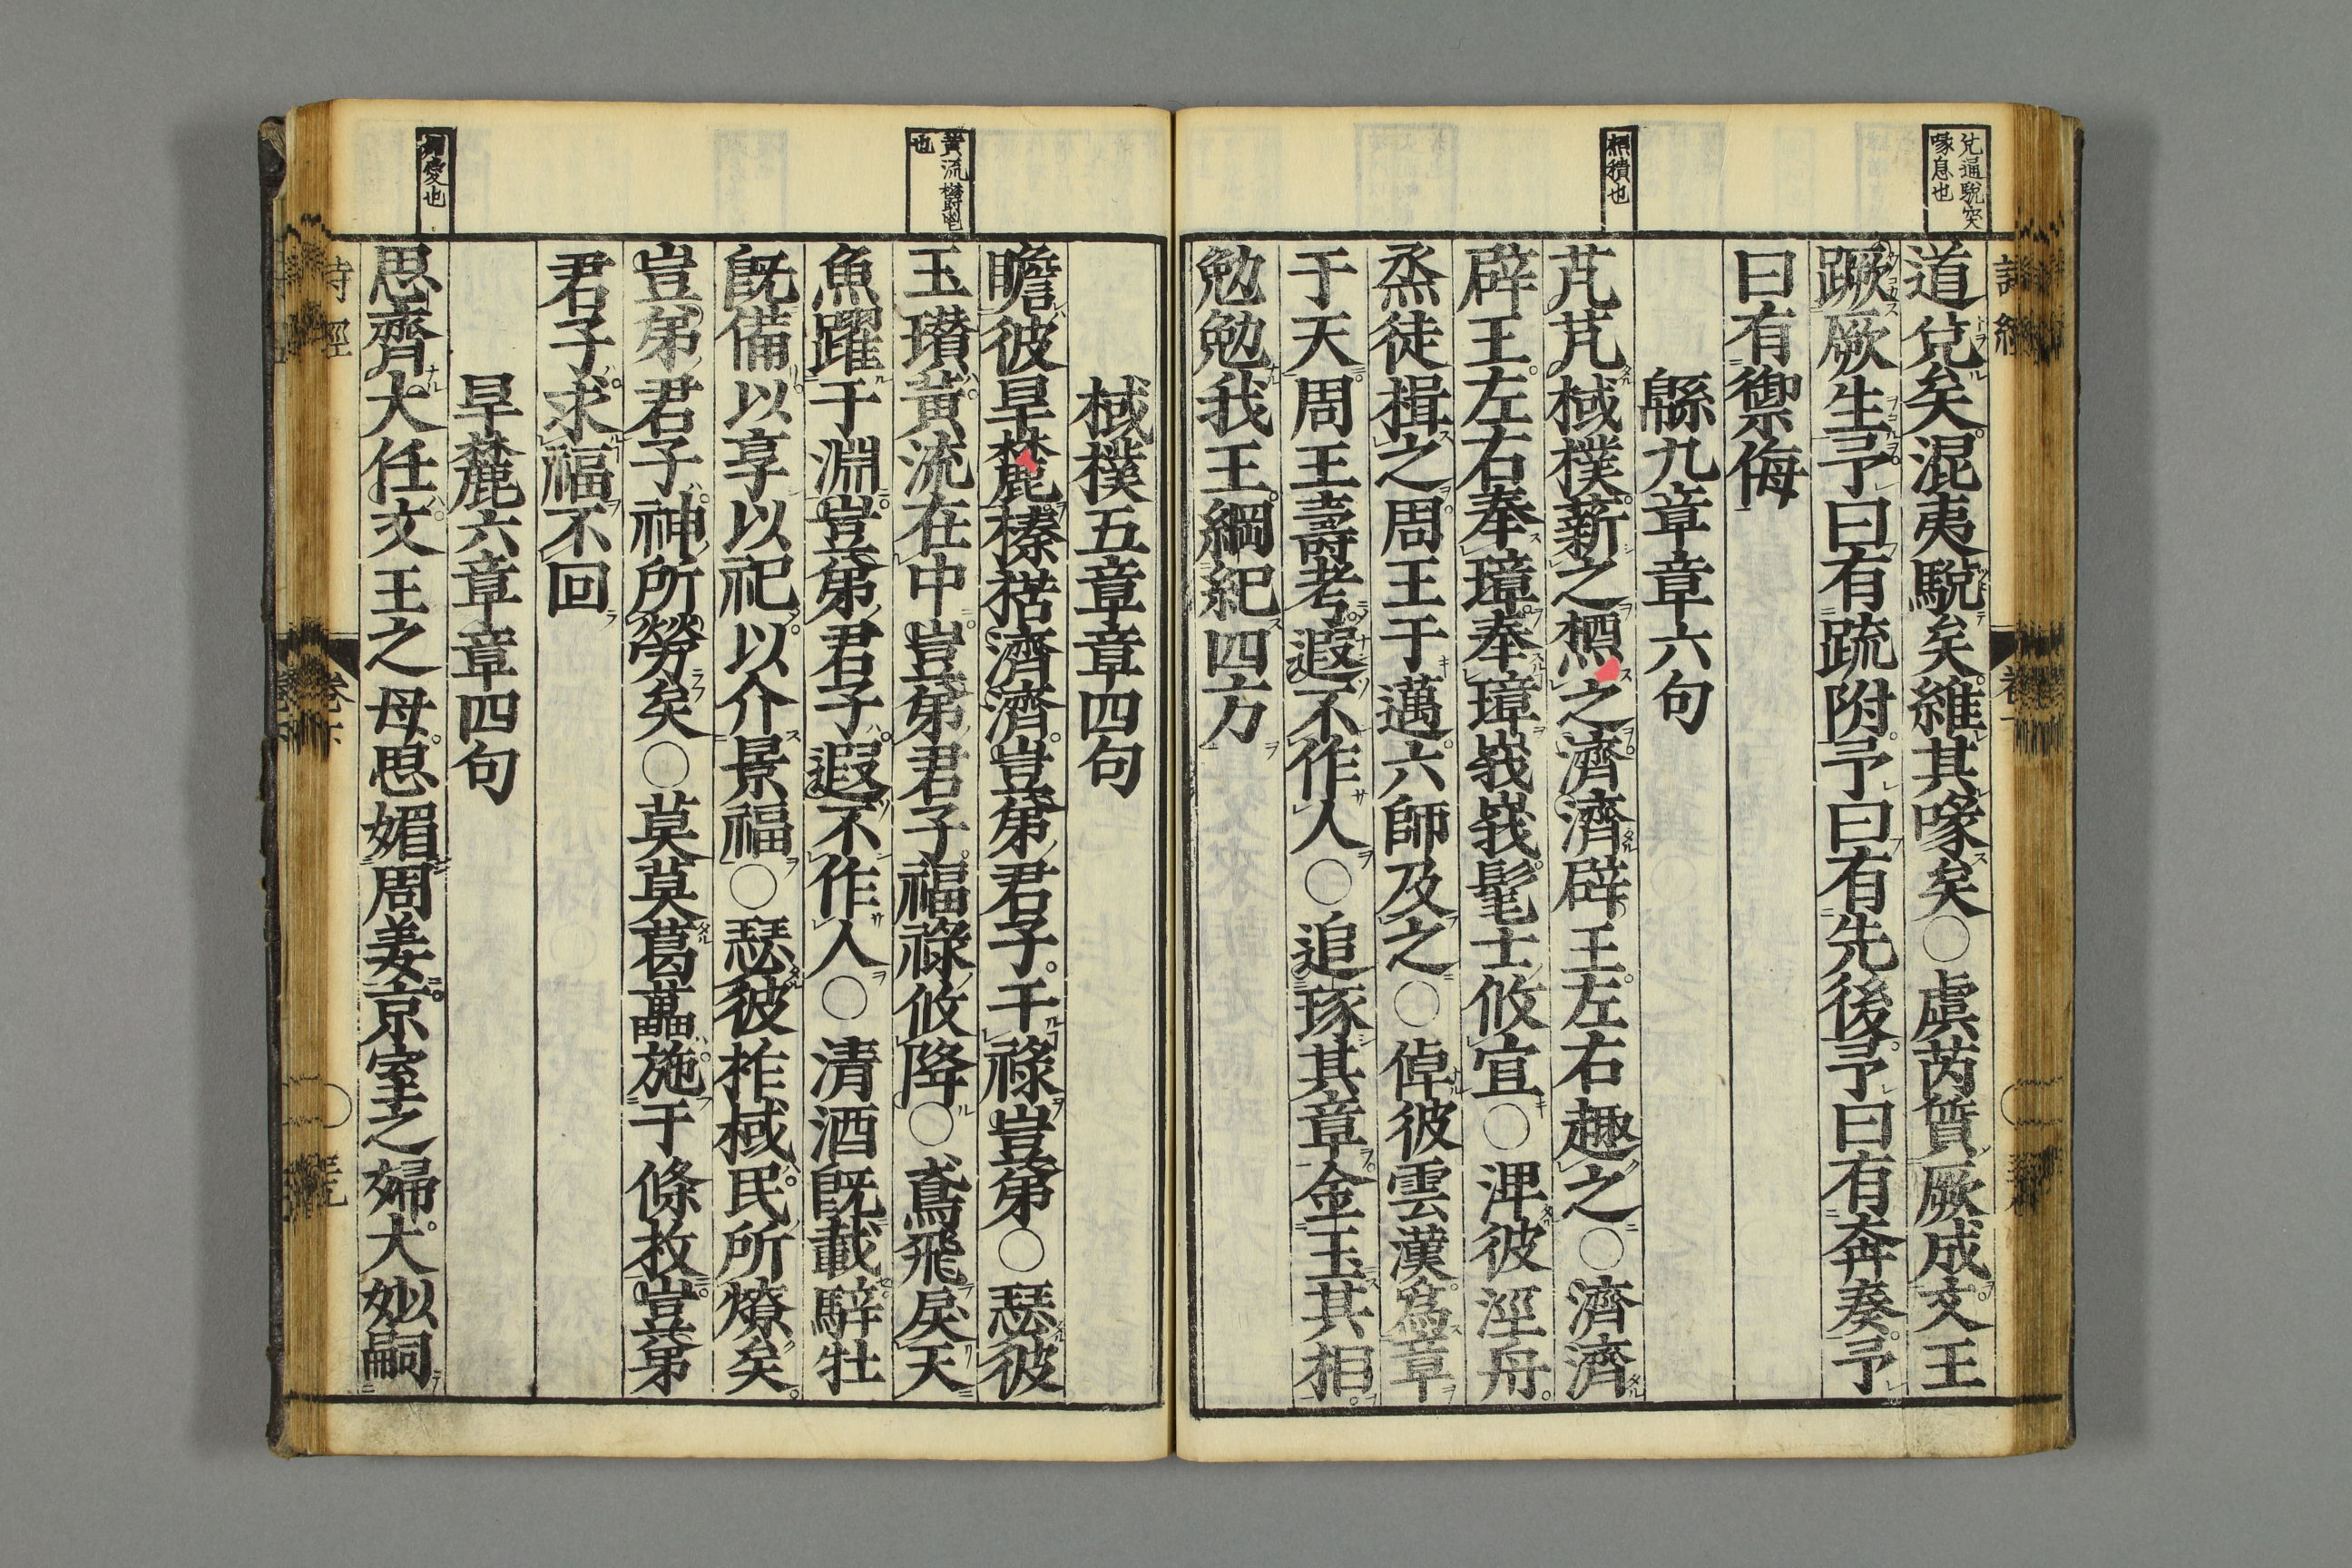 兌通駾突
喙息也
道兌矣混夷駾矣維其喙矣○虞芮質厥成文王
蹶厥生予曰有疏附予曰有先後予曰有奔奏予
曰有禦侮
緜九章章六句
槱積也
芃芃棫樸薪之槱之濟濟辟王左右趣之○濟濟
辟王左右奉璋奉璋峩峩髦士攸宜○淠彼涇舟
烝徒楫之周王于邁六師及之○倬彼雲漢為章
于天周王壽考遐不作人○追琢其章金玉其相
勉勉我王綱紀四方
棫樸五章章四句
瞻彼旱麓榛楛濟濟豈弟君子干祿豈弟○瑟彼
黃流欝鬯
也
玉瓚黃流在中豈弟君子福祿攸降○鳶飛戾天
魚躍于淵豈弟君子遐不作人○清酒既載騂牡
既備以享以祀以介景福○瑟彼柞棫民所燎矣
豈弟君子神所勞矣○莫莫葛藟施于條枚豈弟
君子求福不回
旱麓六章章四句
愛也
思齊大任文王之母思媚周姜京室之婦大姒嗣
詩經